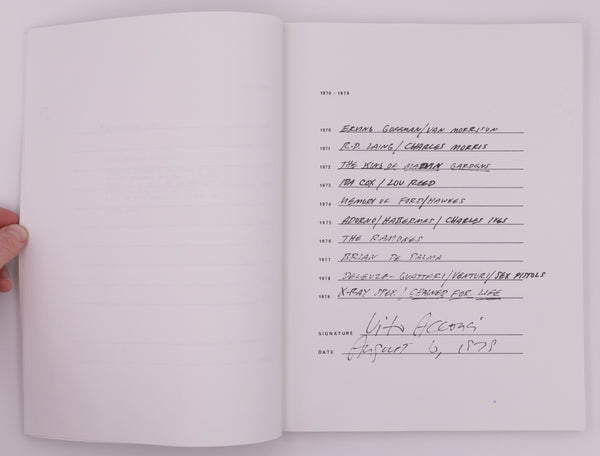 1970 - 1979
1970 ERVING GOFFMAN/VAN MORRISON
1971 R.D. LAING/CHARLES MORRIS
1972 THE KING OF MARVIN GARDENS
1973 IDA COX/LOU REED
1974 MEMORY OF FORD/HAWKES
1975 ADORNO/HABERMAS/CHARLES IVES
1976 THE RAMONES
1977 BRIAN DE PALMA
1978 DELEUZE-GUATTARI/VENTURI/SEX PISTOLS
1979 X-RAY SPEX/ FOR LIFE
SIGNATURE Vito Acconci
DATE August 6, 1979